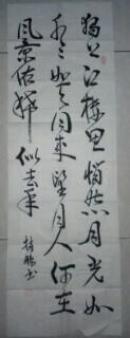 獨上江樓思悄然月光如
水々如天同來望月人何在
風景依稀似去年
书